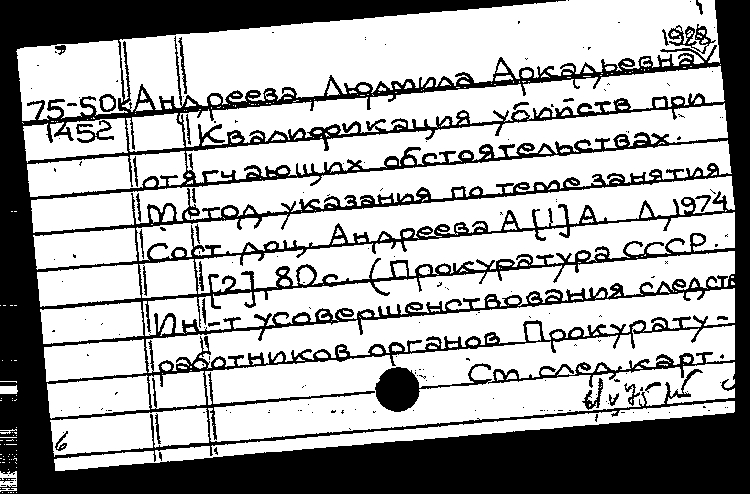 1928
75-50к Андреева, Людмила Аркадьевна
1452 Квалификация убийств при
отягчающих обстоятельствах.
Метод. указания по теме занятия
Сост. доц. Андреева А [!] А. Л, 1974
[2], 80 с. (Прокуратура СССР.
Ин-т усовершенствования следств
работников органов Прокурату-
См. след. карт.
6